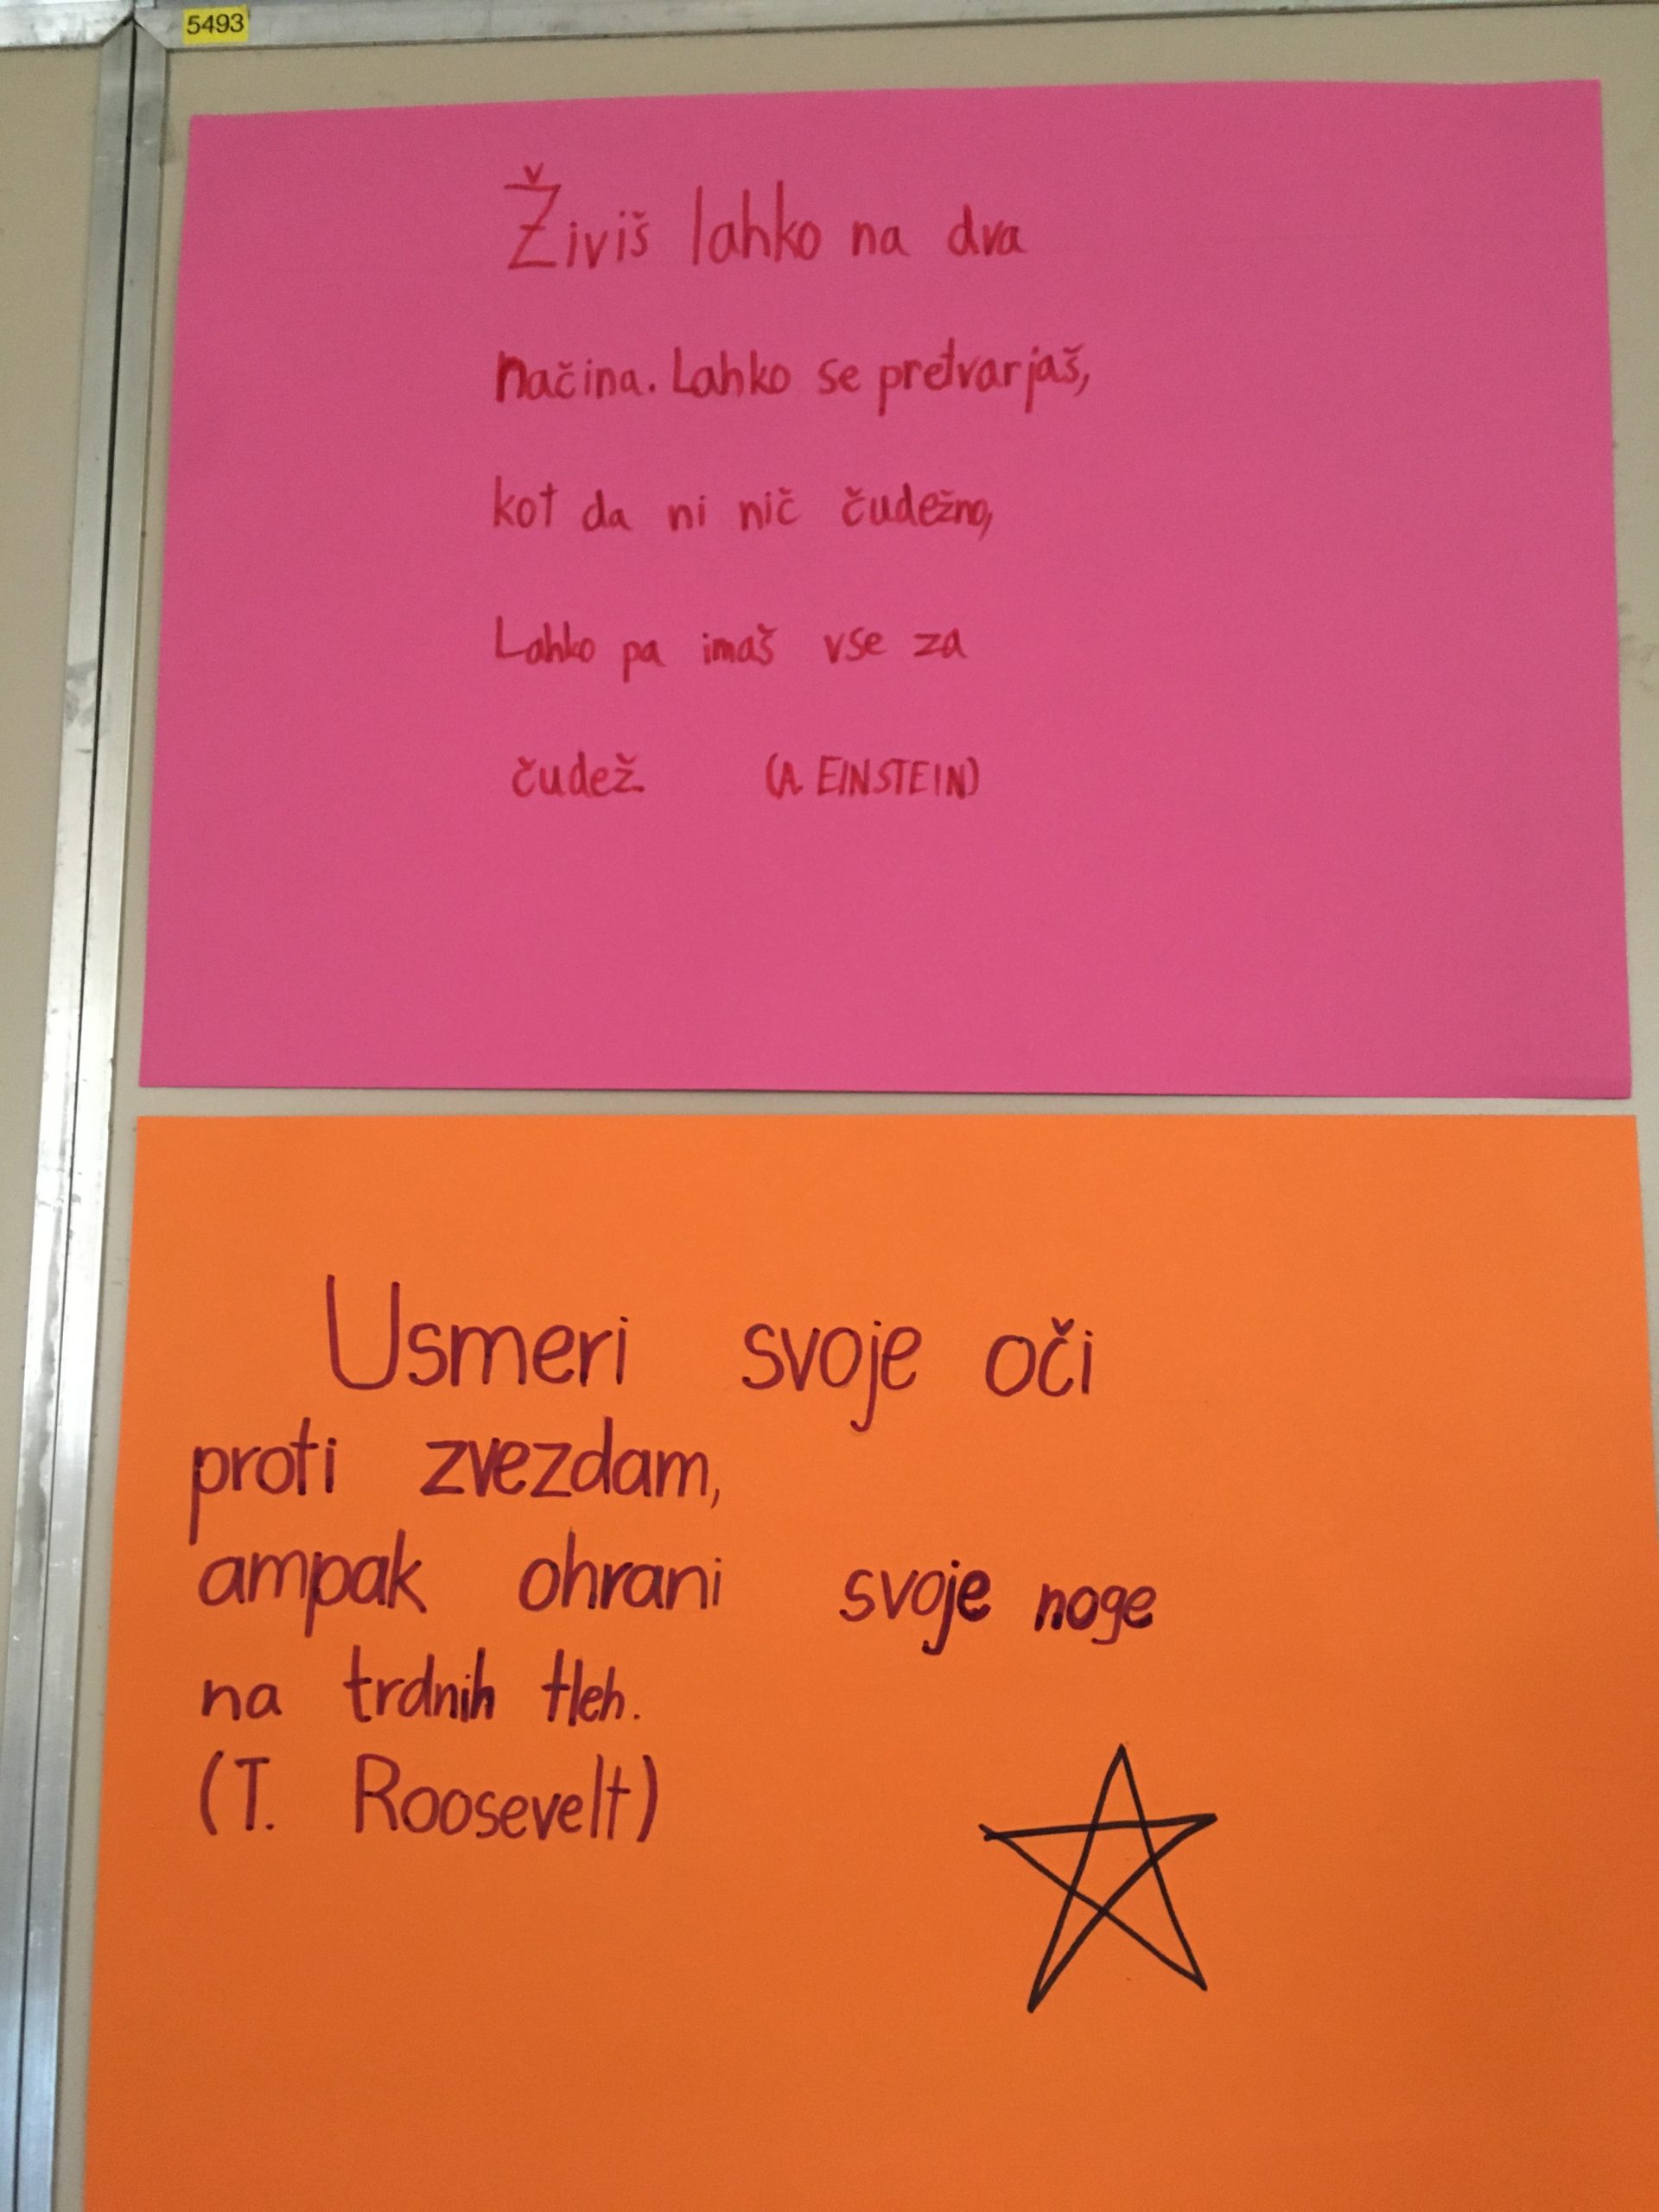 5493
Živiš lahko na dva
načina. Lahko se pretvarjaš,
kot da ni nič čudežno,
Lahko pa imaš vse za
čudež. (A. EINSTEIN)
Usmeri svoje oči
proti zvezdam,
ampak ohrani svoje noge
na trdnih tleh.
(T. Roosevelt)